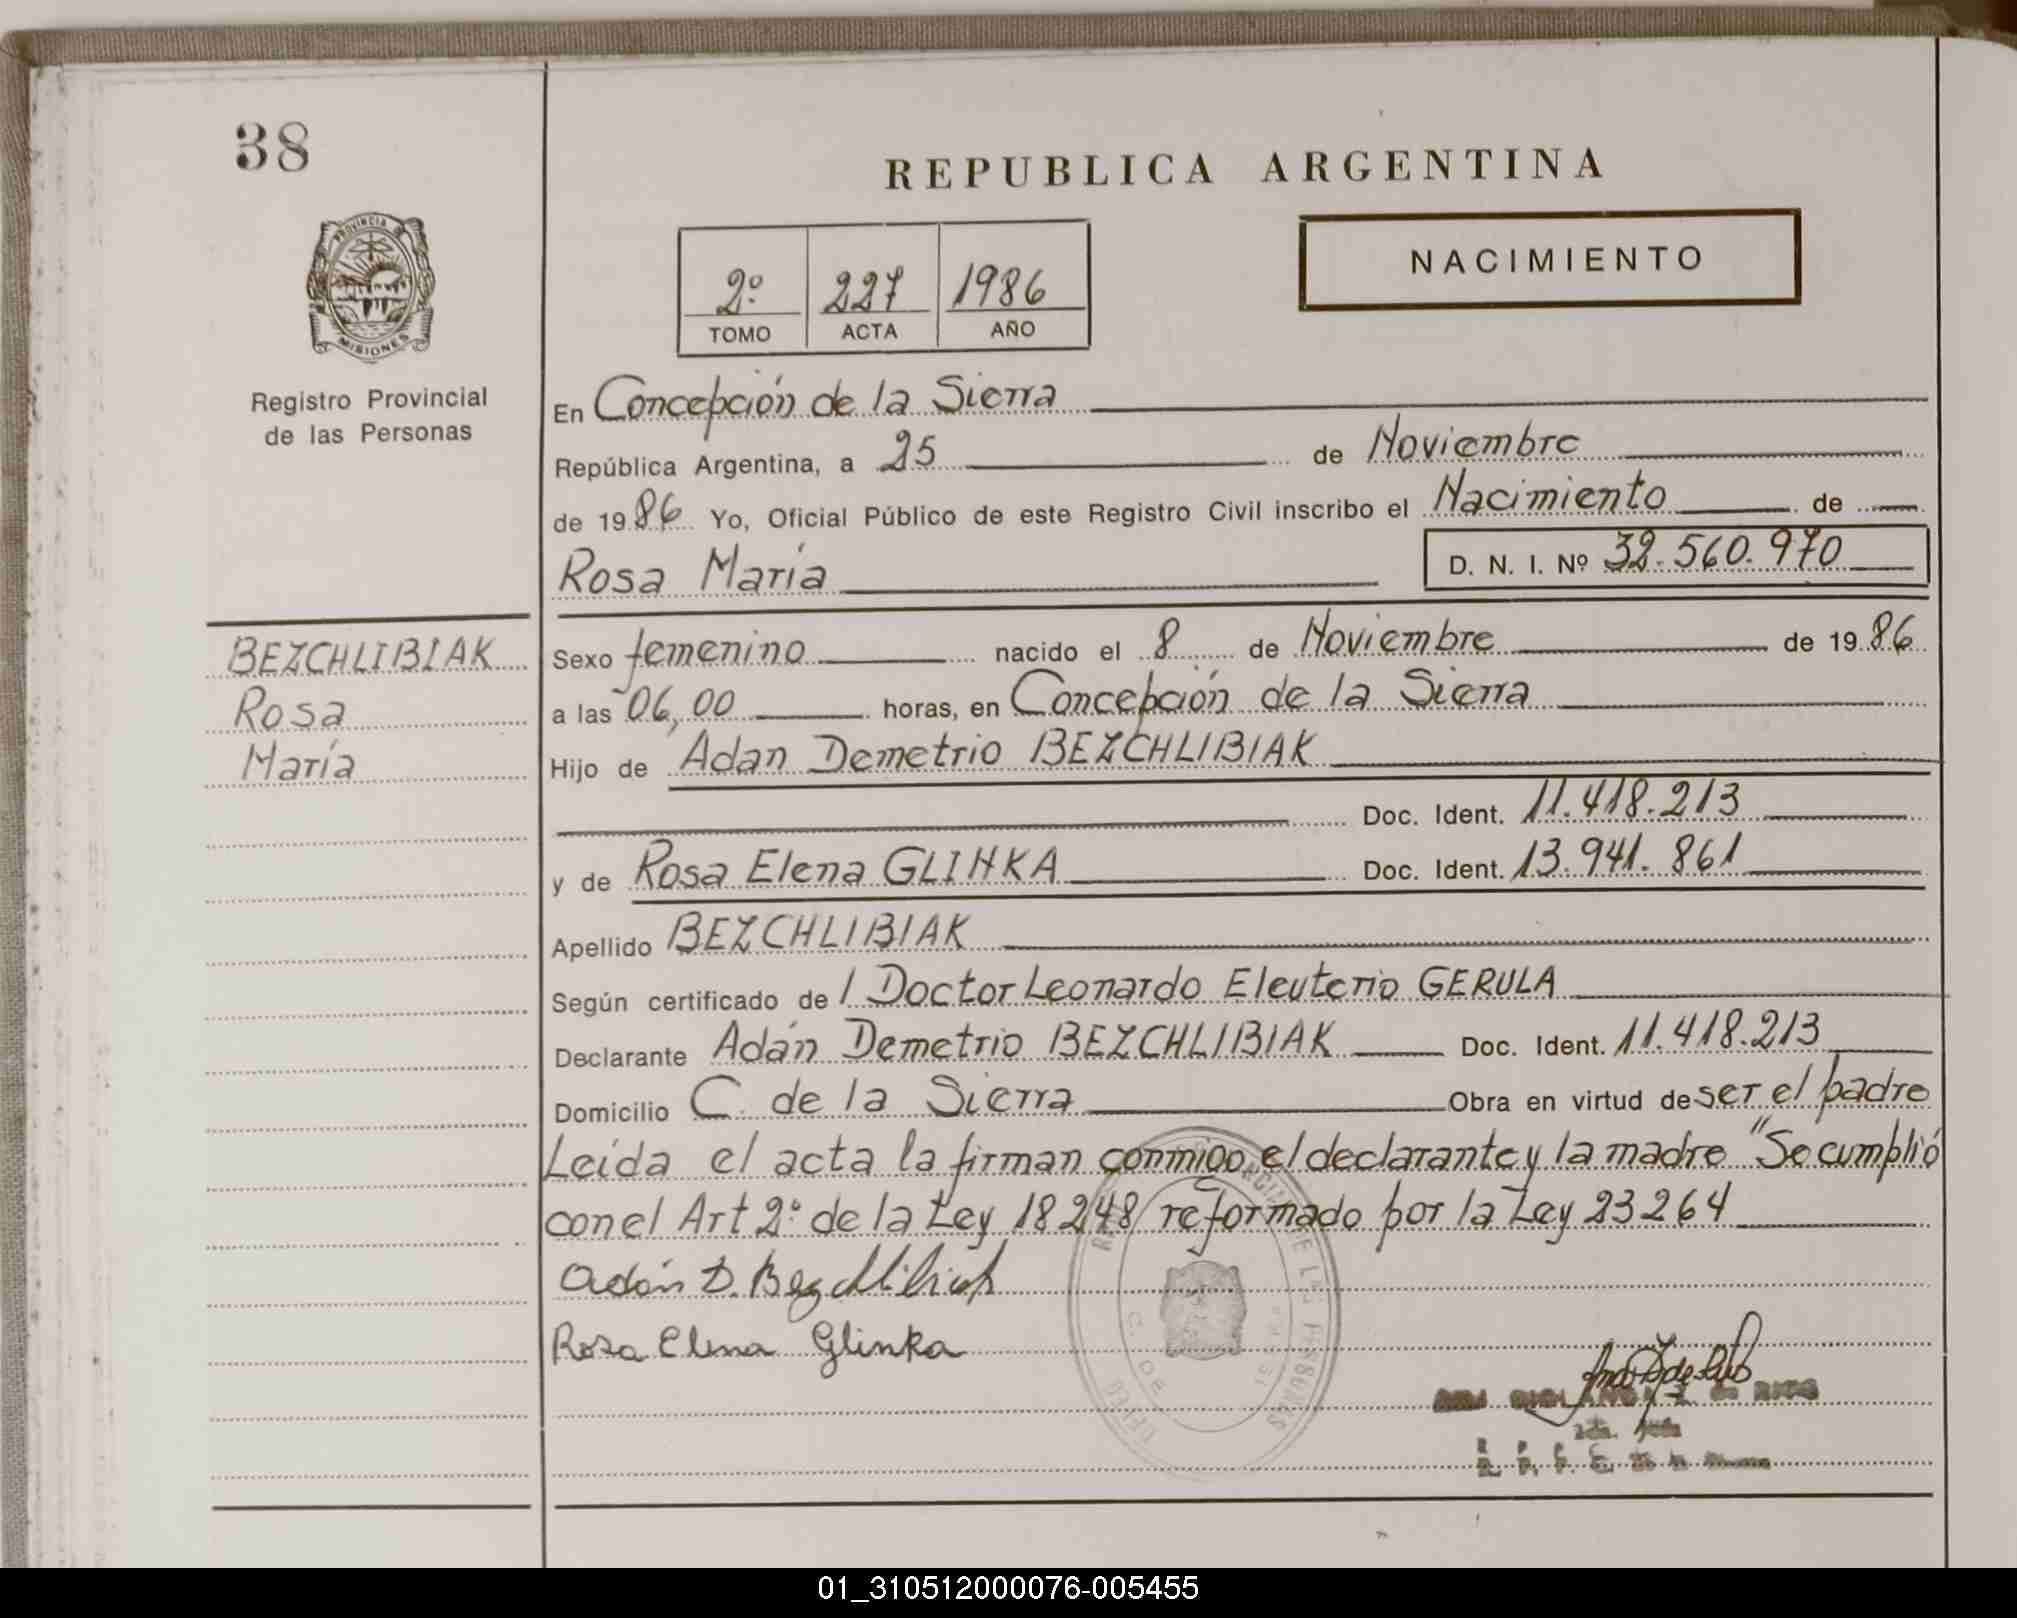 38
REPUBLICA ARGENTINA
NACIMIENTO
2º 227 1986
TOMO ACTA AÑO
PROVINCIA DE
MISIONES
Registro Provincial
de las Personas
En Concepción de la Sierra
República Argentina, a 25 de Noviembre
de 1986 Yo, Oficial Público de este Registro Civil inscribo el Nacimiento de
Rosa María D. N. I. Nº 32.560.970
BEZCHLIBIAK
Rosa
María
Sexo femenino nacido el 8 de Noviembre de 1986
a las 06,00 horas, en Concepción de la Sierra
Hijo de Adan Demetrio BEZCHLIBIAK
Doc. Ident. 11.418.213
y de Rosa Elena GLINKA Doc. Ident. 13.941.861
Apellido BEZCHLIBIAK
Según certificado de l Doctor Leonardo Eleuterio GERULA
Declarante Adán Demetrio BEZCHLIBIAK Doc. Ident. 11.418.213
Domicilio C. de la Sierra Obra en virtud de ser el padre
Leída el acta la firman conmigo el declarante y la madre "Se cumplió
con el Art 2º de la Ley 18248 reformado por la Ley 23264
Adán D. Bezchlibiak
Rosa Elena Glinka
de RIOS
01_310512000076-005455